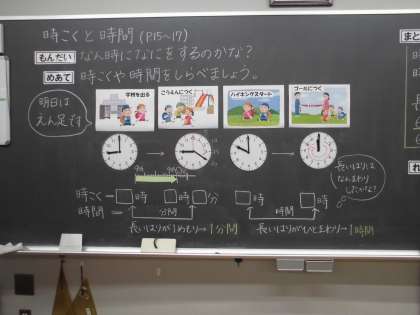 時こくと時間 (P15~17)
もんだい なん時になにをするのかな?
めあて 時こくや時間をしらべましょう。
明日は
えん足です
学校を出る
こうえんにつく
ハイキングスタート
ゴールにつく
時こく― □時 □時□分 □時 □時
時間= 分間 時間
長いはりが1めもり→1分間
長いはりがひとまわり→1時間
長いはりは
なんまわり
したかな?
まと
れ